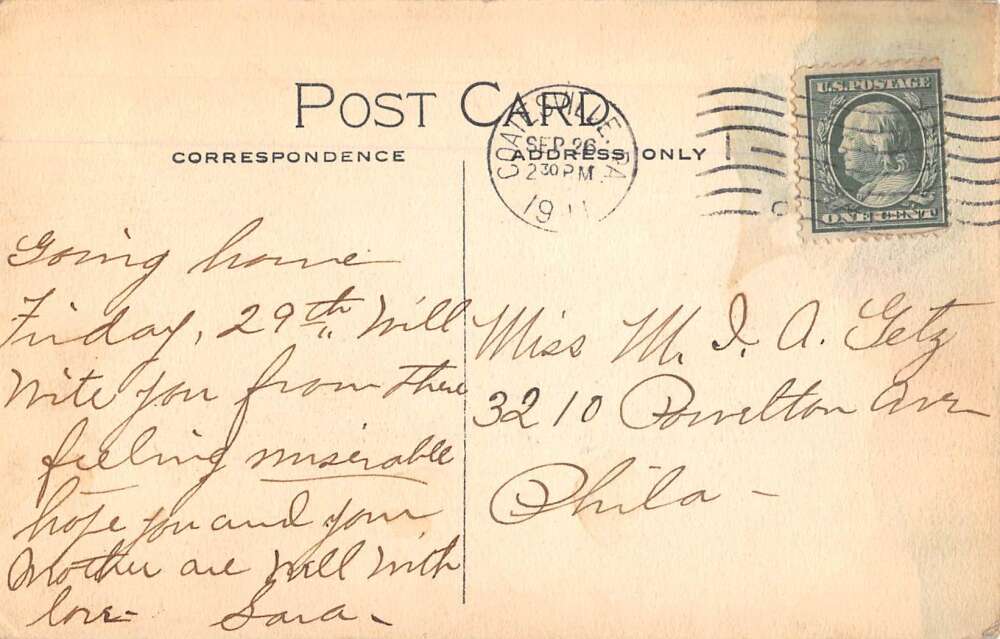 POST CARD
CORRESPONDENCE
ADDRESS ONLY
COATESVILLE PA
SEP 26
2 30 PM
1911
U.S. POSTAGE
ONE CENT
Going home
Friday, 29th, Will
Write you from there
feeling miserable
hope you and your
Mother are Well With
love - Sara -
Miss M. I. A. Getz
3210 Powelton Ave
Phila -